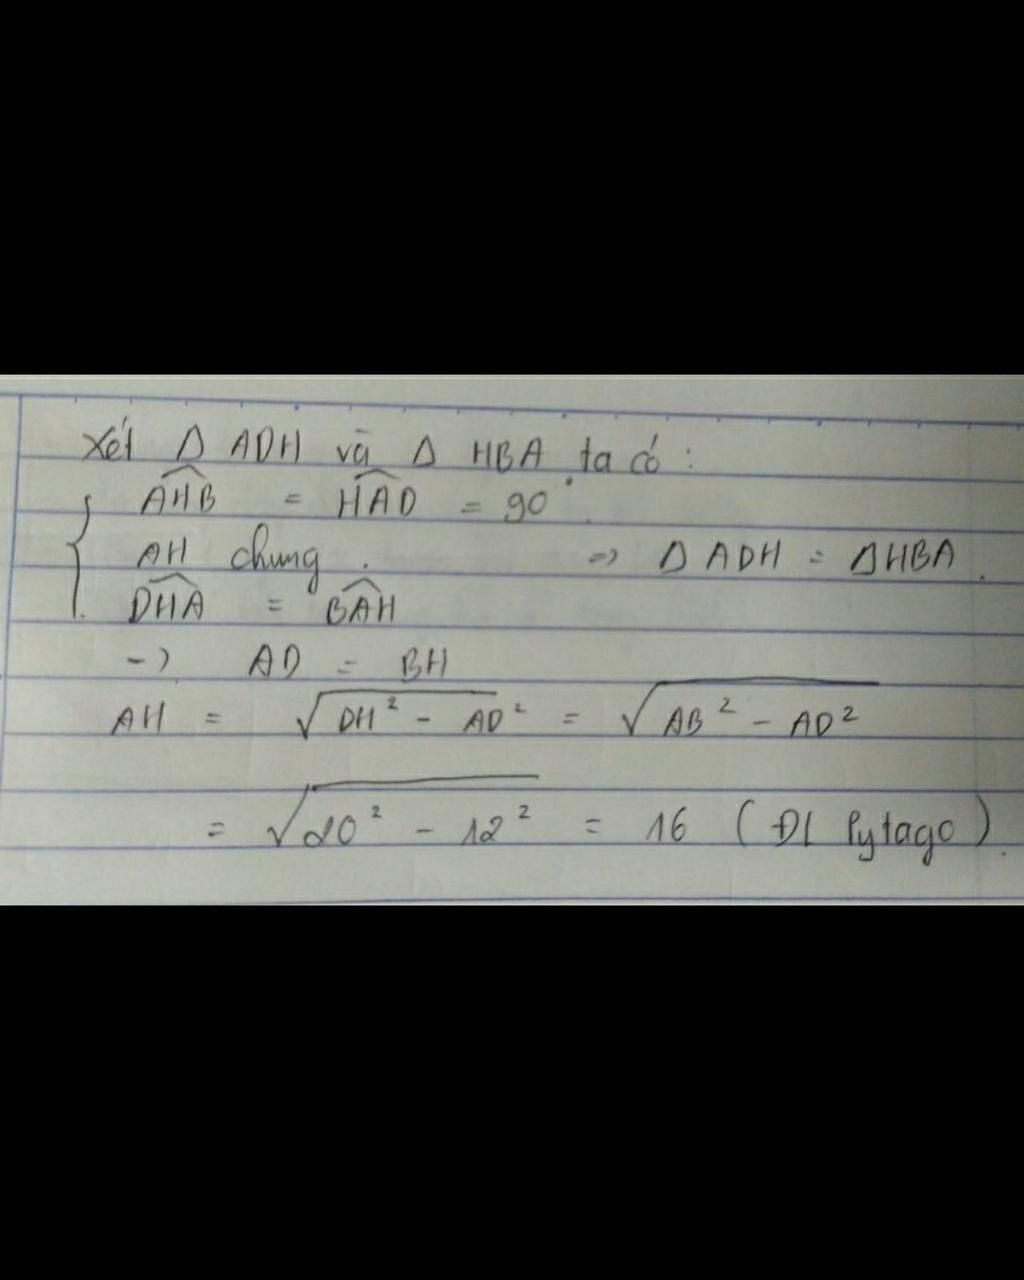 Xét Δ ADH và Δ HBA ta có :
{ \widehat{AHB} = \widehat{HAD} = 90°
AH chung . => Δ ADH = Δ HBA .
\widehat{DHA} = \widehat{BAH}
-> AD = BH
AH = √(DH² - AD²) = √(AB² - AD²)
= √(20² - 12²) = 16 ( ĐL Pytago ) .